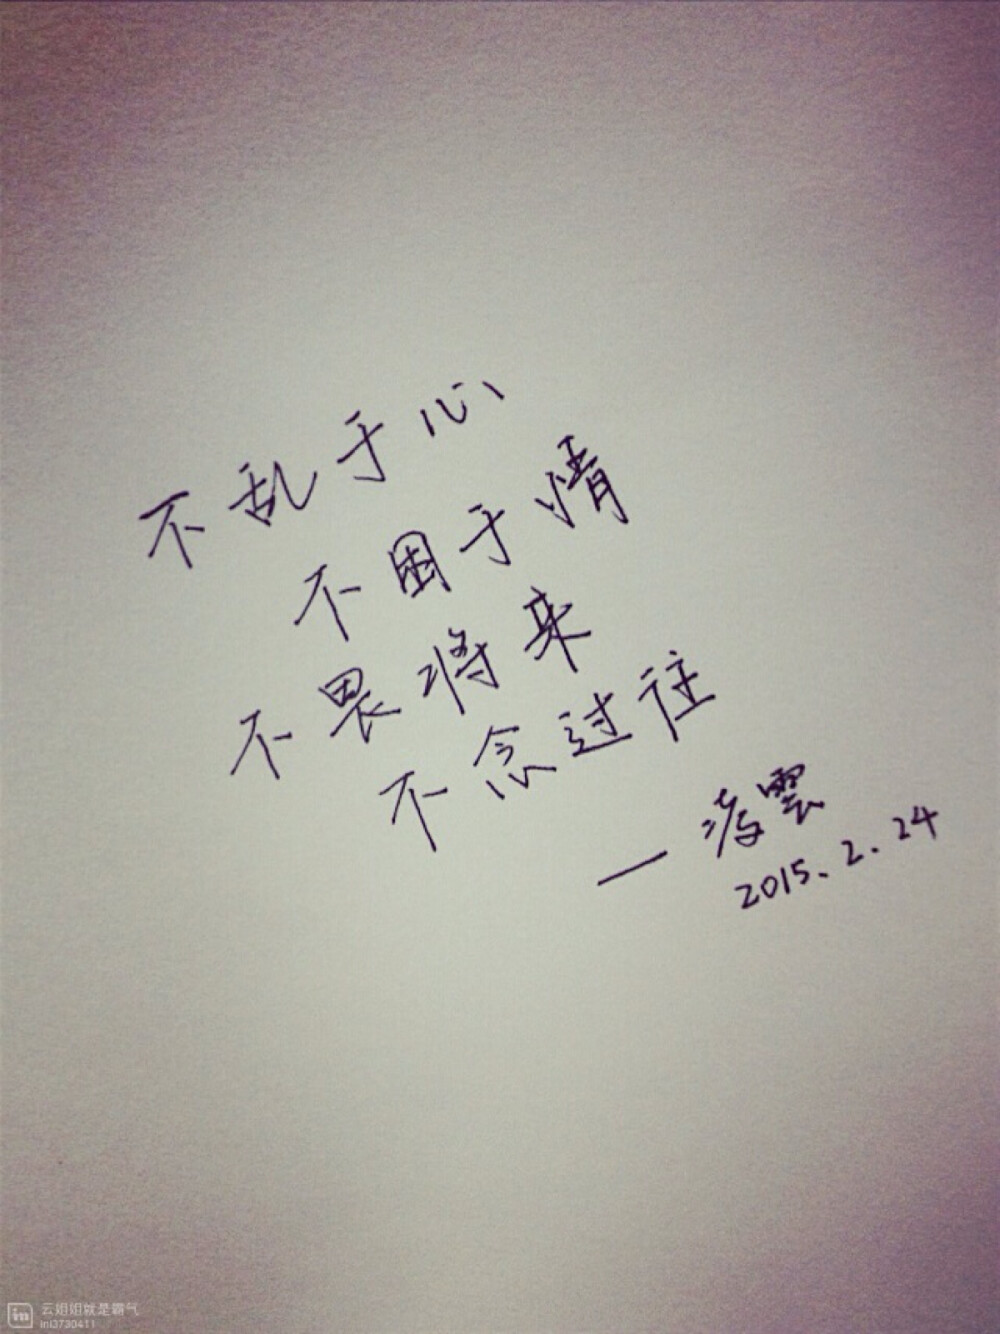 不乱于心
不困于情
不畏将来
不念过往
— 凌雲
2015、2.24
in 云姐姐就是霸气
ini3730411